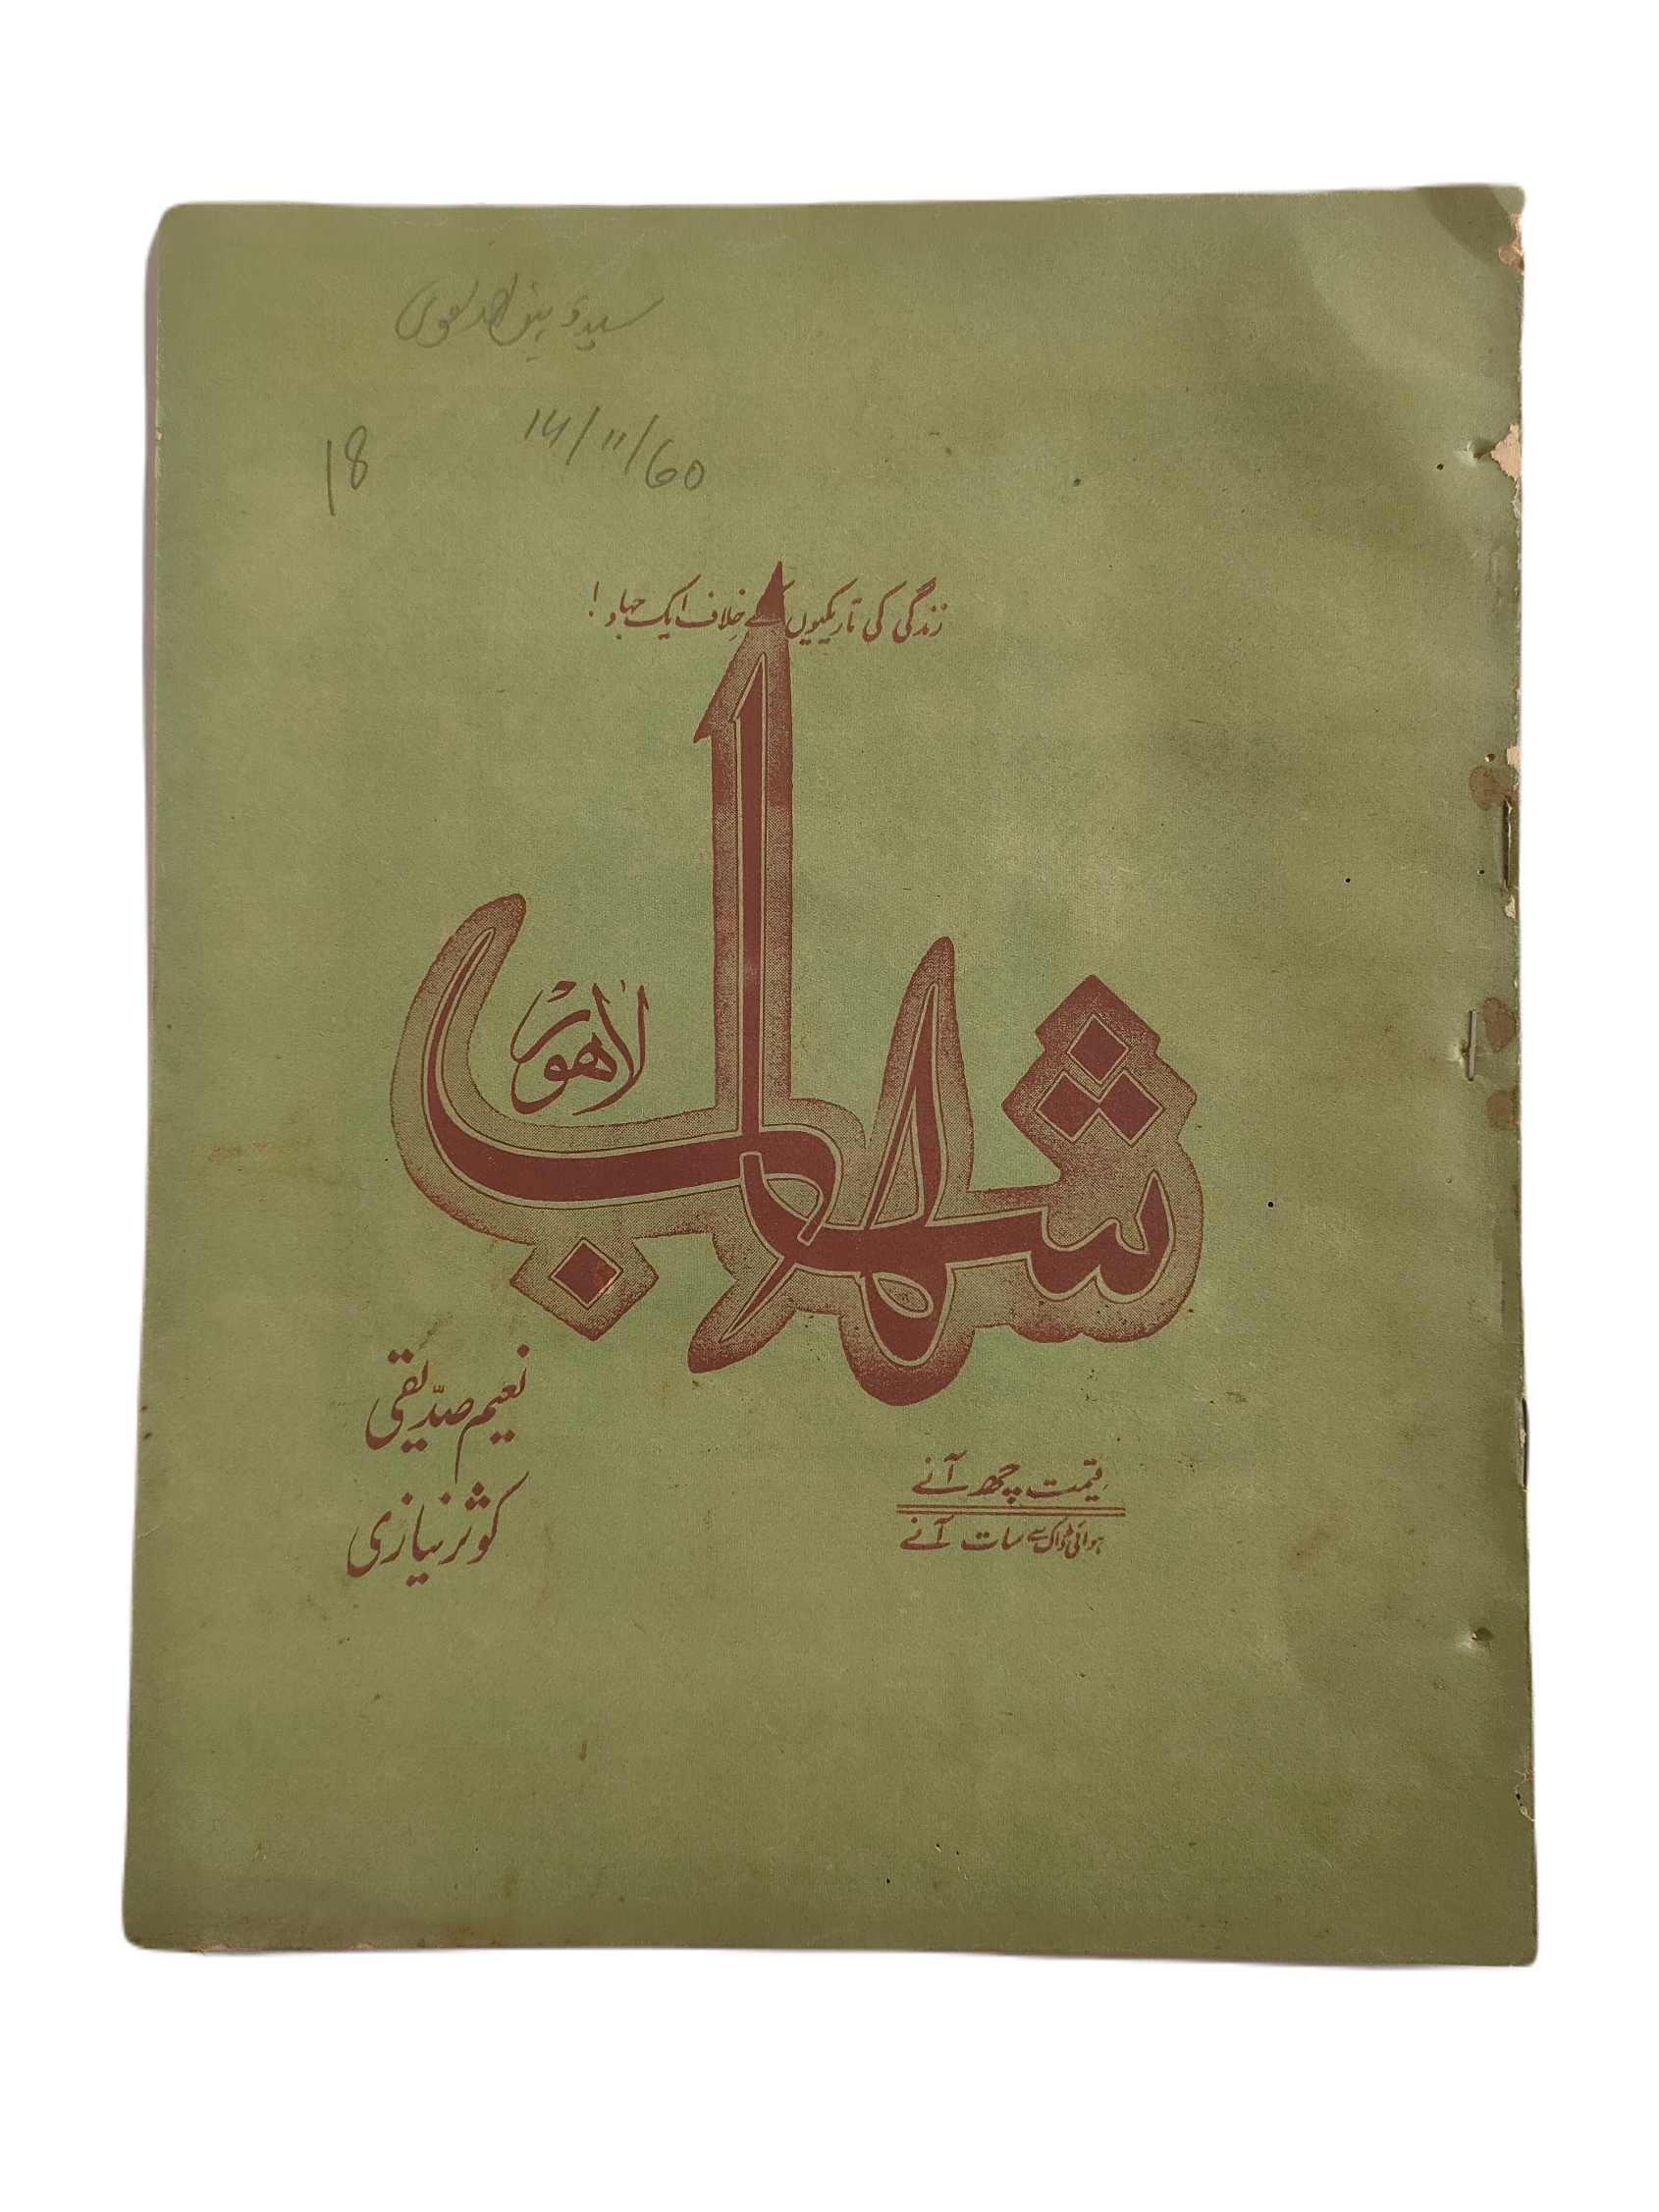 18
14/11/60
زندگی کی تاریکیوں کے خلاف ایک جہاد!
شہاب
لاہور
نعیم صدیقی
کوثر نیازی
قیمت چھ آنے
ہوائی ڈاک سے سات آنے